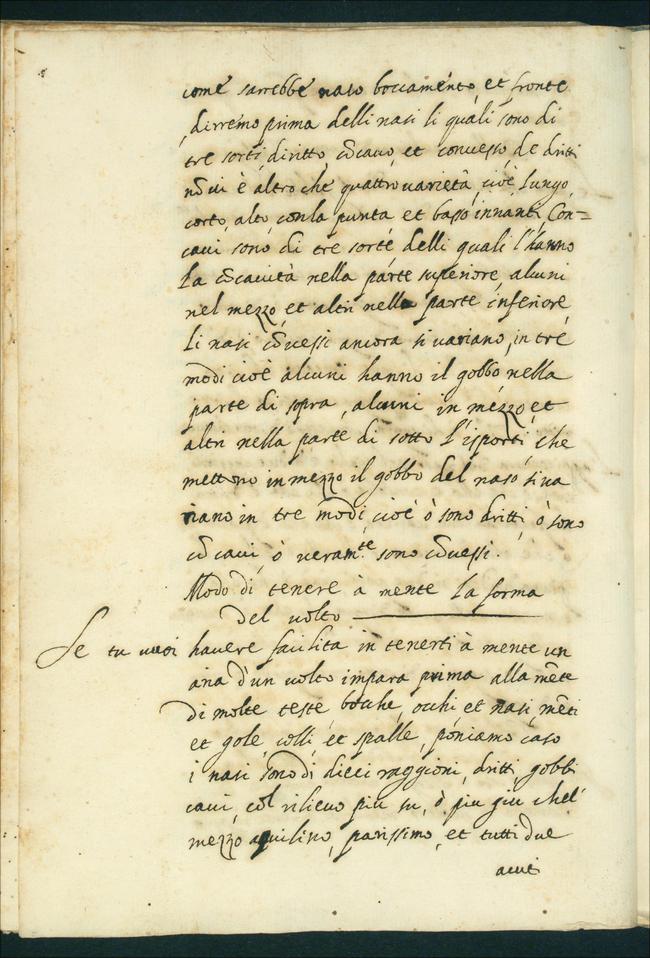 come sarrebbe naso bocca mento, et fronte
dirremo prima delli nasi li quali sono di
tre sorti, diritto, cōcavo, et convesso, de dritti
nō vi è altro che quattro varietà, cioè lungo,
corto, alto con la punta et basso innanti, Con=
cavi sono di tre sorte delli quali l'hanno
la cōcavità nella parte superiore, alcuni
nel mezzo, et altri nella parte inferiore,
li nasi cōvessi ancora si variano, in tre
modi cioè alcuni hanno il gobbo nella
parte di sopra, alcuni in mezzo, et
altri nella parte di sotto l'isporti, che
mettono in mezzo il gobbo del naso si va
riano in tre modi, cioè ò sono dritti, ò sono
cōcavi, ò veram.te sono cōvessi.
Modo di tenere à mente la forma
del volto
Se tu vuoi havere facilita in tenerti à mente un
aria d'un volto impara prima alla mēte
di molte teste bocche, occhi et nasi, mēti
et gole, colli, et spalle, poniamo caso
i nasi sono di dieci raggioni, dritti, gobbi
cavi, col rilievo piu su, ò piu giu chel'
mezzo aquilino, parissimo, et tutti due